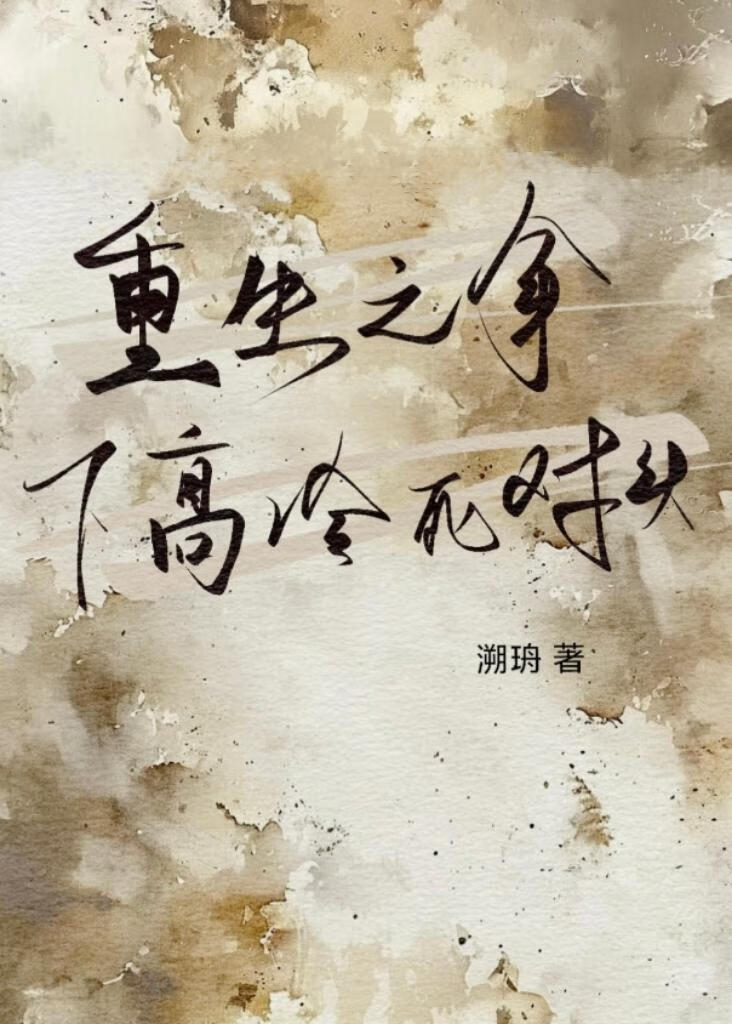 重生之拿
下高冷死对头
溯玬 著